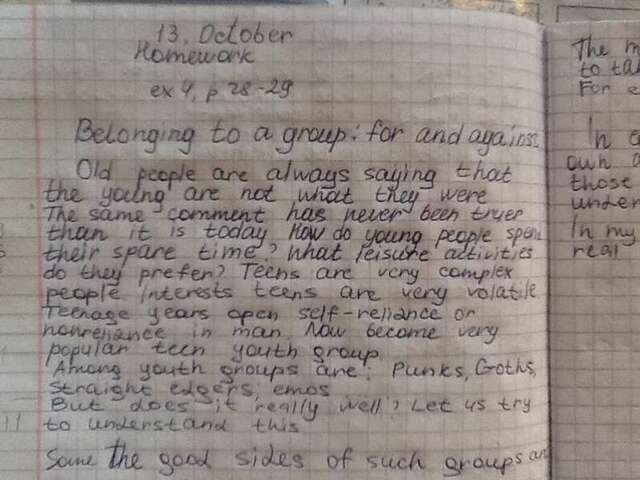 13. October
Homework
ex 4, p 28-29
Belonging to a group: for and against
Old people are always saying that
the young are not what they were
The same comment has never been truer
than it is today. How do young people spend
their spare time? What leisure activities
do they prefer? Teens are very complex
people Interests teens are very volatile
Teenage years open self-reliance or
nonreliance in man. Now become very
popular teen youth group
Among youth groups are: Punks, Goths,
straight edgers, emos
But does it really well? Let us try
to understand this
Some the good sides of such groups
The
to
For
In
own
those
under
In my
real